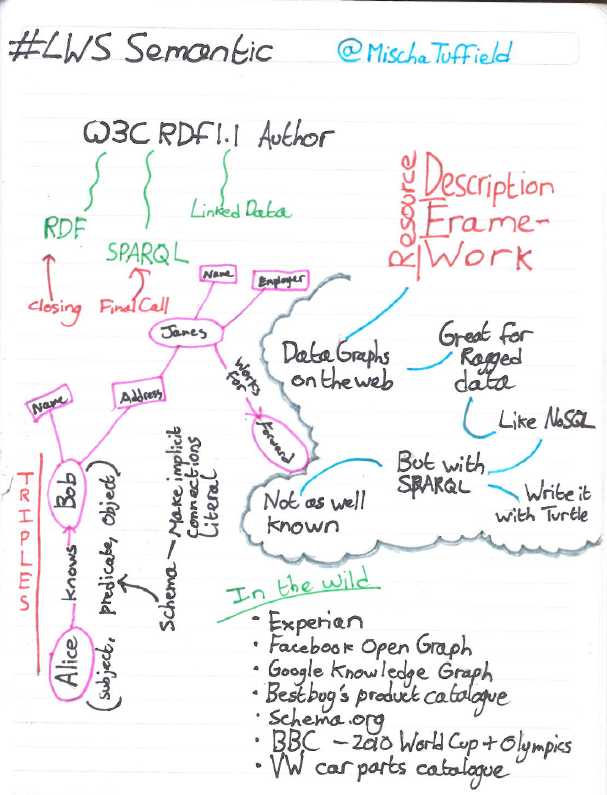 #LWS Semantic
@MischaTuffield
W3C RDF1.1 Author
RDF
SPARQL
Linked Data
closing
Final Call
Resource
Description
Frame-
Work
Name
Employer
James
Works
for
Forward
Address
Name
Bob
knows
Alice
TRIPLES
(subject, predicate, object)
Schema - Make implicit
connections
literal
Data Graphs
on the web
Great for
Ragged
data
Like NoSQL
But with
SPARQL
Write it
with Turtle
Not as well
known
In the wild
• Experian
• Facebook Open Graph
• Google Knowledge Graph
• Bestbug's product catalogue
• Schema.org
• BBC - 2010 World Cup + Olympics
• VW car parts catalogue